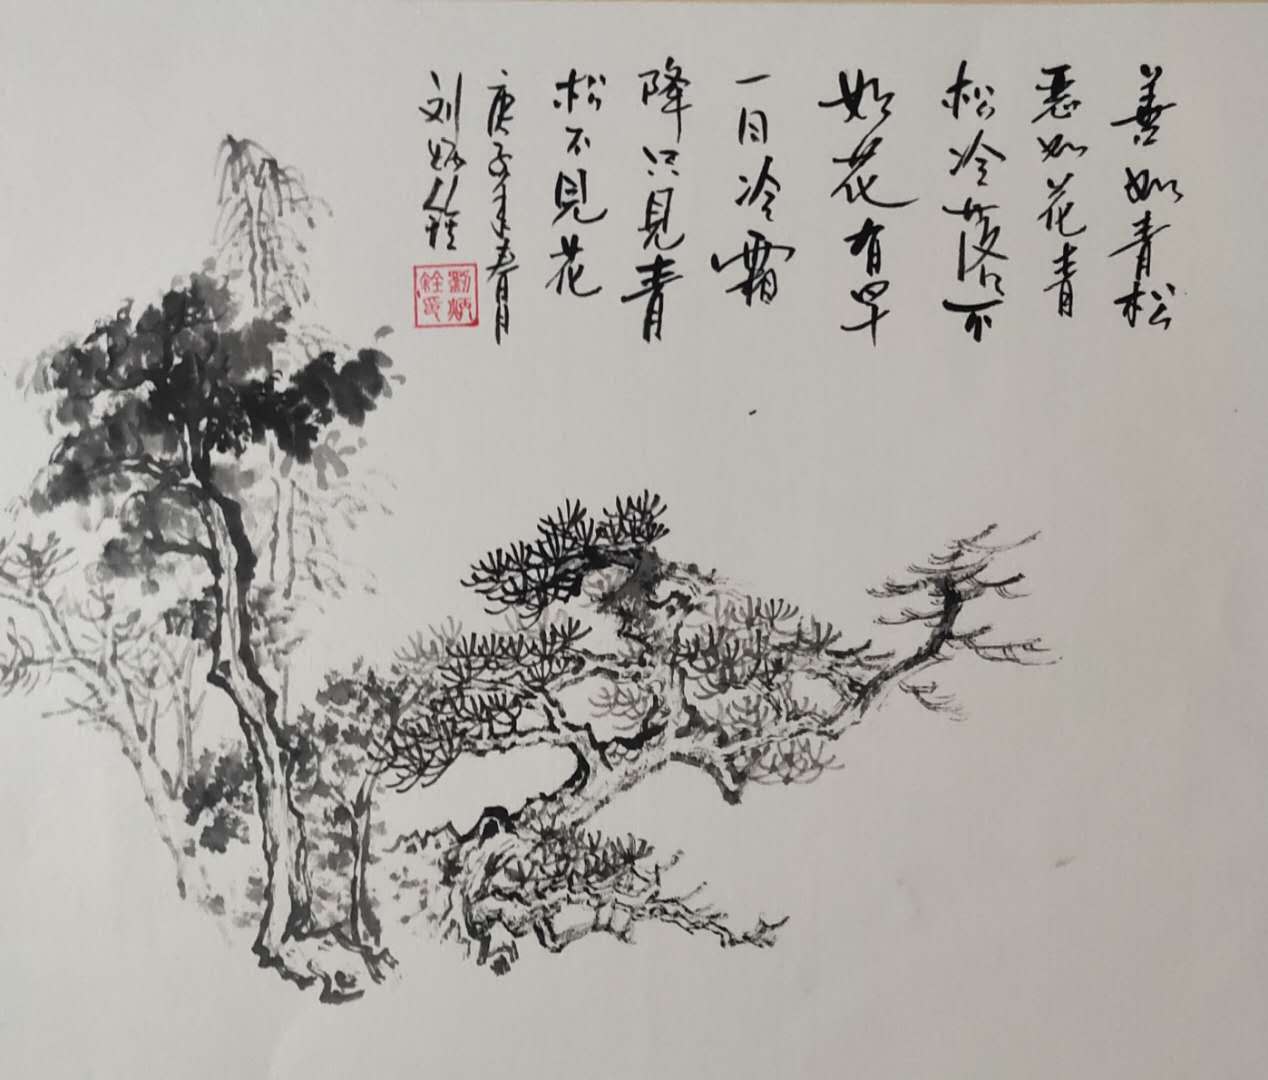 善如青松
恶如花青
松冷落不
如花有早
一日冷霜
降只見青
松不見花
庚子年春月
刘炳銓
劉炳銓印